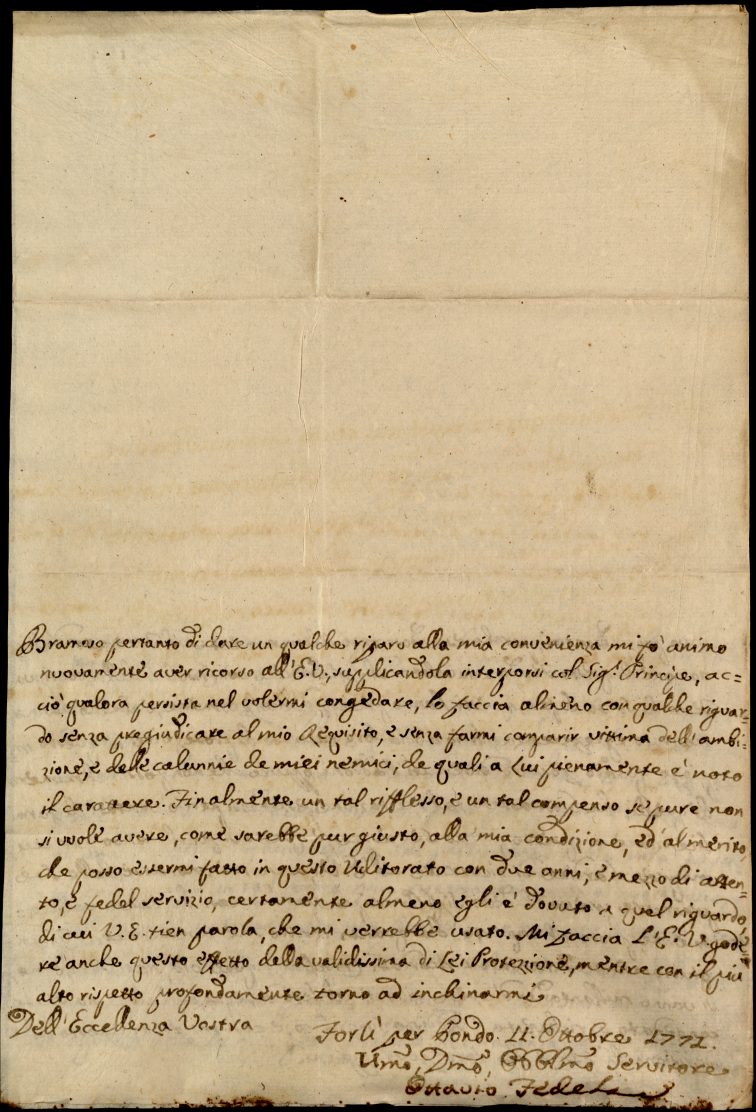 Bramoso pertanto di dare un qualche riparo alla mia convenienza mi fò animo
nuovamente aver ricorso all'E.V., supplicandola interporsi col Sig.r Principe, ac=
ciò qualora persista nel volermi congedare, lo faccia almeno con qualche riguar=
do senza pregiudicare al mio Requisito, e senza farmi comparir vittima dell'ambi=
zione, e delle calunnie de miei nemici, de quali a Lui pienamente è noto
il carattere. Finalmente un tal rifflesso, e un tal compenso se pure non
si vuole avere, come sarebbe pur giusto, alla mia condizione, ed al merito
che posso essermi fatto in questo Uditorato con due anni, e mezzo di atten=
to, e fedel servizio, certamente almeno egli è dovuto a quel riguardo,
di cui V.E. tien parola, che mi verrebbe usato. Mi faccia L'E.V. gode=
re anche questo effetto della validissima di Lei Protezzione, mentre con il più
alto rispetto profondamente torno ad inchinarmi
Dell'Eccellenza Vostra
Forlì per Bondo 11. Ottobre 1771.
Umo, Dmo, Obblmo Servitore
Ottavio